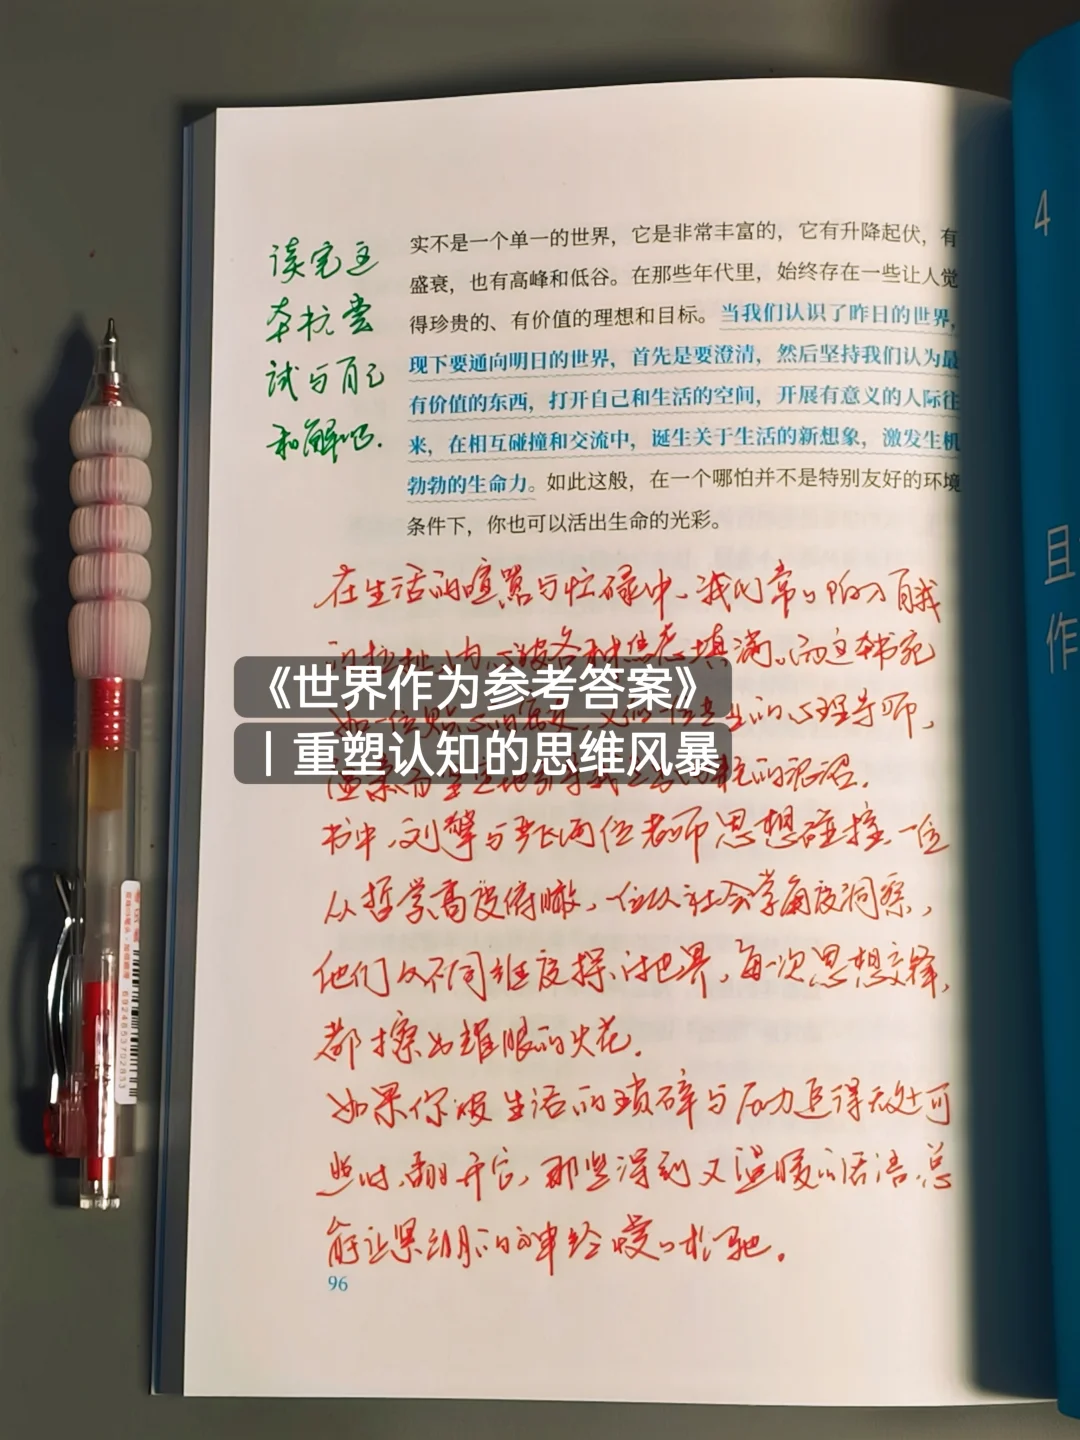 读完这
本书尝
试与自己
和解吧.
实不是一个单一的世界，它是非常丰富的，它有升降起伏，有
盛衰，也有高峰和低谷。在那些年代里，始终存在一些让人觉
得珍贵的、有价值的理想和目标。当我们认识了昨日的世界，
现下要通向明日的世界，首先是要澄清，然后坚持我们认为最
有价值的东西，打开自己和生活的空间，开展有意义的人际往
来，在相互碰撞和交流中，诞生关于生活的新想象，激发生机
勃勃的生命力。如此这般，在一个哪怕并不是特别友好的环境
条件下，你也可以活出生命的光彩。
在生活的喧嚣与忙碌中、我们常常陷入自我
内心被各种焦虑填满。而这本书宛
的心理导师，
《世界作为参考答案》
丨重塑认知的思维风暴
书中，刘擎与 两位老师思想碰撞、一位
从哲学高度俯瞰，一位从社会学角度洞察，
他们从不同维度探讨世界，每一次思想交锋，
都擦出耀眼的火花.
如果你被生活的琐碎与压力追得无处可
逃时，翻开它，那些深刻又温暖的话语，总
能让紧绷的神经慢慢松弛.
96
4
且
作
6924853702853